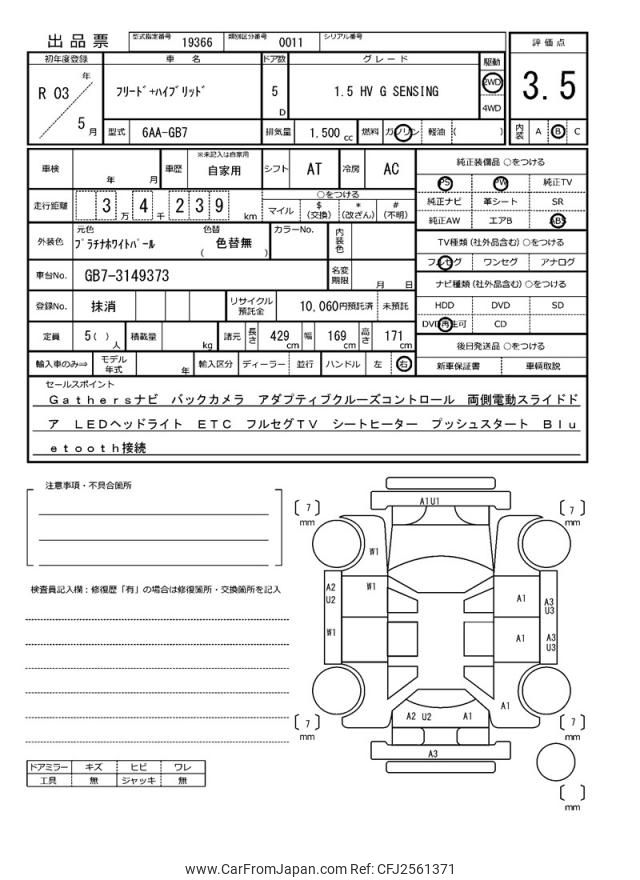 出品票
型式指定番号 19366 類別区分番号 0011 シリアル番号
評価点
3.5
初年度登録 車名 ドア数 グレード 駆動
R 03 年 5 月
フリード+ハイブリッド
5 D
1.5 HV G SENSING
2WD
4WD
型式 6AA-GB7 排気量 1,500 cc 燃料 ガソリン 軽油 ( )
内装 A B C
車検 年 月 車歴 ※未記入は自家用 自家用 シフト AT 冷房 AC
走行距離 3 万 4 千 2 3 9 km
○をつける
マイル $(交換) *(改ざん) #(不明)
外装色 元色 プラチナホワイトパール 色替 ( 色替無 ) カラーNo. 内装色
車台No. GB7-3149373 名変期限 月 日
登録No. 抹消 リサイクル預託金 10,060円預託済 未預託
定員 5( )人 積載量 kg 諸元 長さ 429cm 幅 169cm 高さ 171cm
輸入車のみ⇒ モデル年式 年 輸入区分 ディーラー 並行 ハンドル 左 右
純正装備品 ○をつける
PS PW 純正TV
純正ナビ 革シート SR
純正AW エアB ABS
TV種類(社外品含む)○をつける
フルセグ ワンセグ アナログ
ナビ種類(社外品含む)○をつける
HDD DVD SD
DVD再生可 CD
後日発送品 ○をつける
新車保証書 車輌取説
セールスポイント
Gathersナビ バックカメラ アダプティブクルーズコントロール 両側電動スライドド
ア LEDヘッドライト ETC フルセグTV シートヒーター プッシュスタート Blu
etooth接続
注意事項・不具合箇所
検査員記入欄:修復歴「有」の場合は修復箇所・交換箇所を記入
ドアミラー キズ ヒビ ワレ
工具 無 ジャッキ 無
A1U1
〔 7 〕mm
〔 7 〕mm
W1
A2 U2
W1
A1
A3 U3
W1
A1
A3 U3
A1
A2 U2 A1
〔 7 〕mm
〔 7 〕mm
A3
〔 〕mm
www.CarFromJapan.com Ref: CFJ2561371